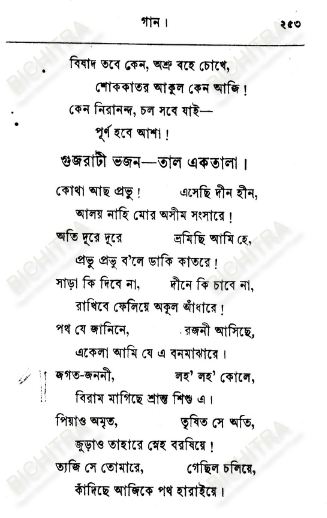 গান।
২৫৩
বিষাদ তবে কেন, অশ্রু বহে চোখে,
শোককাতর আকুল কেন আজি!
কেন নিরানন্দ, চল সবে যাই—
পূর্ণ হবে আশা!
গুজরাটী ভজন—তাল একতালা।
কোথা আছ প্রভু! এসেছি দীন হীন,
আলয় নাহি মোর অসীম সংসারে!
অতি দূরে দূরে ভ্রমিছি আমি হে,
প্রভু প্রভু ব'লে ডাকি কাতরে!
সাড়া কি দিবে না, দীনে কি চাবে না,
রাখিবে ফেলিয়ে অকূল আঁধারে!
পথ যে জানিনে, রজনী আসিছে,
একেলা আমি যে এ বনমাঝারে।
জগত-জননী, লহ' লহ' কোলে,
বিরাম মাগিছে শ্রান্ত শিশু এ।
পিয়াও অমৃত, তৃষিত সে অতি,
জুড়াও তাহারে স্নেহ বরষিয়ে!
ত্যজি সে তোমারে, গেছিল চলিয়ে,
কাঁদিছে আজিকে পথ হারাইয়ে।
BICHITRA